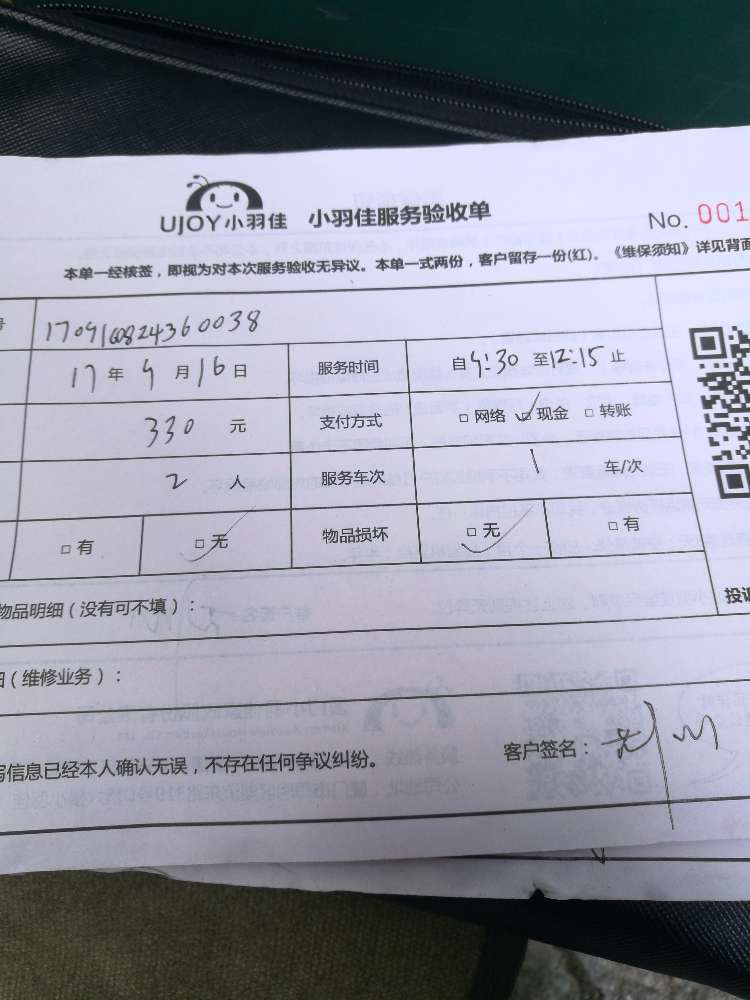 UJOY小羽佳 小羽佳服务验收单
No. 001
本单一经核签，即视为对本次服务验收无异议。本单一式两份，客户留存一份(红)。《维保须知》详见背面
号 1709160824360038
17年9月16日 服务时间 自9:30至12:15止
330元 支付方式 □网络 □现金 □转账
2人 服务车次 1 车/次
□有 □无 物品损坏 □无 □有
物品明细（没有可不填）：
投诉
（维修业务）：
写信息已经本人确认无误，不存在任何争议纠纷。
客户签名：